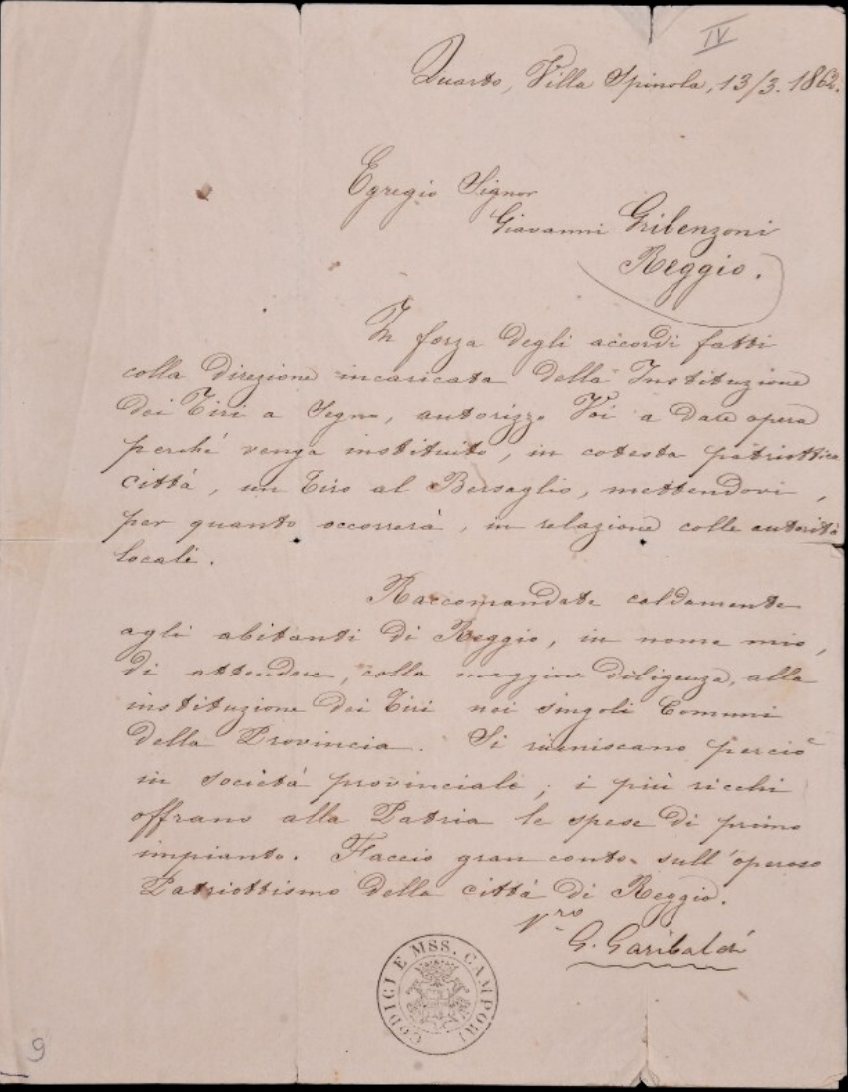 IV
Quarto, Villa Spinola, 13/3. 1862.
Egregio Signor
Giovanni Grilenzoni
Reggio.
In forza degli accordi fatti
colla direzione incaricata della Instituzione
dei Tiri a Segno, autorizzo Voi a dare opera
perché venga instituito, in cotesta patriottica
città, un Tiro al Bersaglio, mettendovi,
per quanto occorrerà, in relazione colle autorità
locali.
Raccomandate caldamente
agli abitanti di Reggio, in nome mio,
di attendere, colla maggiore diligenza, alla
instituzione dei Tiri nei singoli Comuni
della Provincia. Si riuniscano perciò
in società provinciali; i più ricchi
offrano alla Patria le spese di primo
impianto. Faccio gran conto sull'operoso
Patriottismo della città di Reggio.
Vro
G. Garibaldi
CODICI E MSS. CAMPORI
9